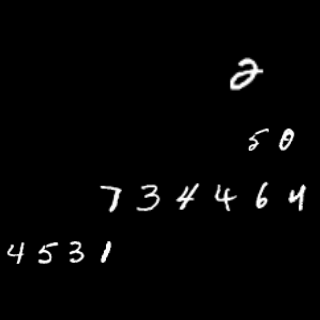 2
50
734464
4531